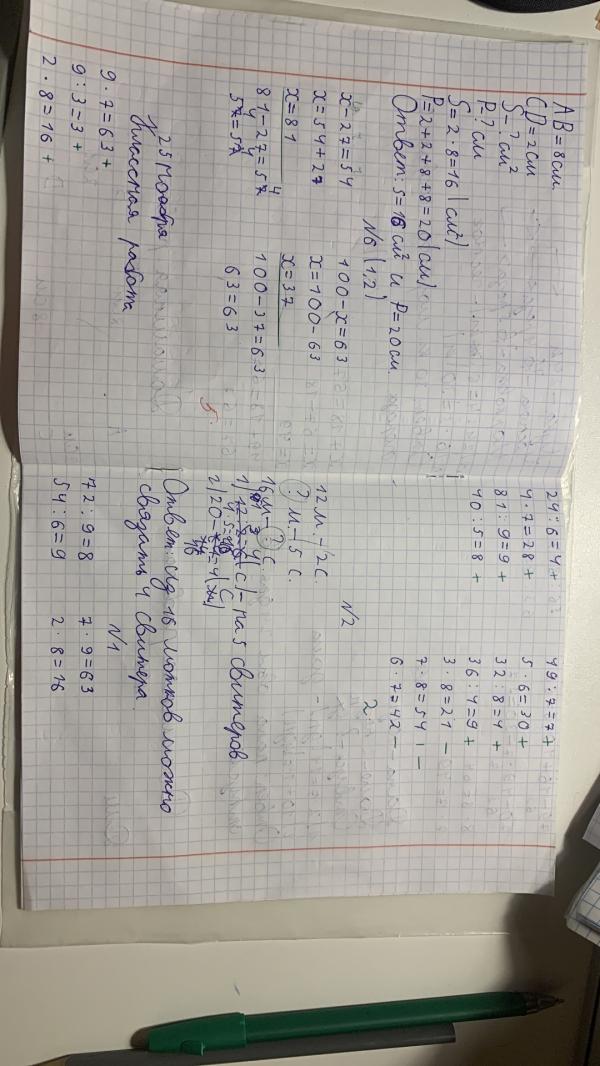 AB=8см.
CD=2см
S-? см²
P? см
S=2·8=16(см²)
P=2+2+8+8=20(см)
Ответ: S=16 см² и P=20см.
№6 (1,2)
x-27=54
100-x=63
x=54+27
x=100-63
x=81
x=37
81-27=54
100-37=63
54=54
63=63
5.
25 Ноября
Классная работа
9·7=63+
9:3=3+
2·8=16+
24:6=4+
49:7=7+
4·7=28+
5·6=30+
81:9=9+
32:8=4+
40:5=8+
36:4=9+
3·8=21-
7·8=54--
6·7=42-
2
№2
12м-2с.
? м-5с.
16м-? с
1)
(с)-на 5 свитеров
2)20-
=4(
Ответ: из 16 мотков можно
связать 4 свитера
№1
72:9=8
7·9=63
54:6=9
2·8=16